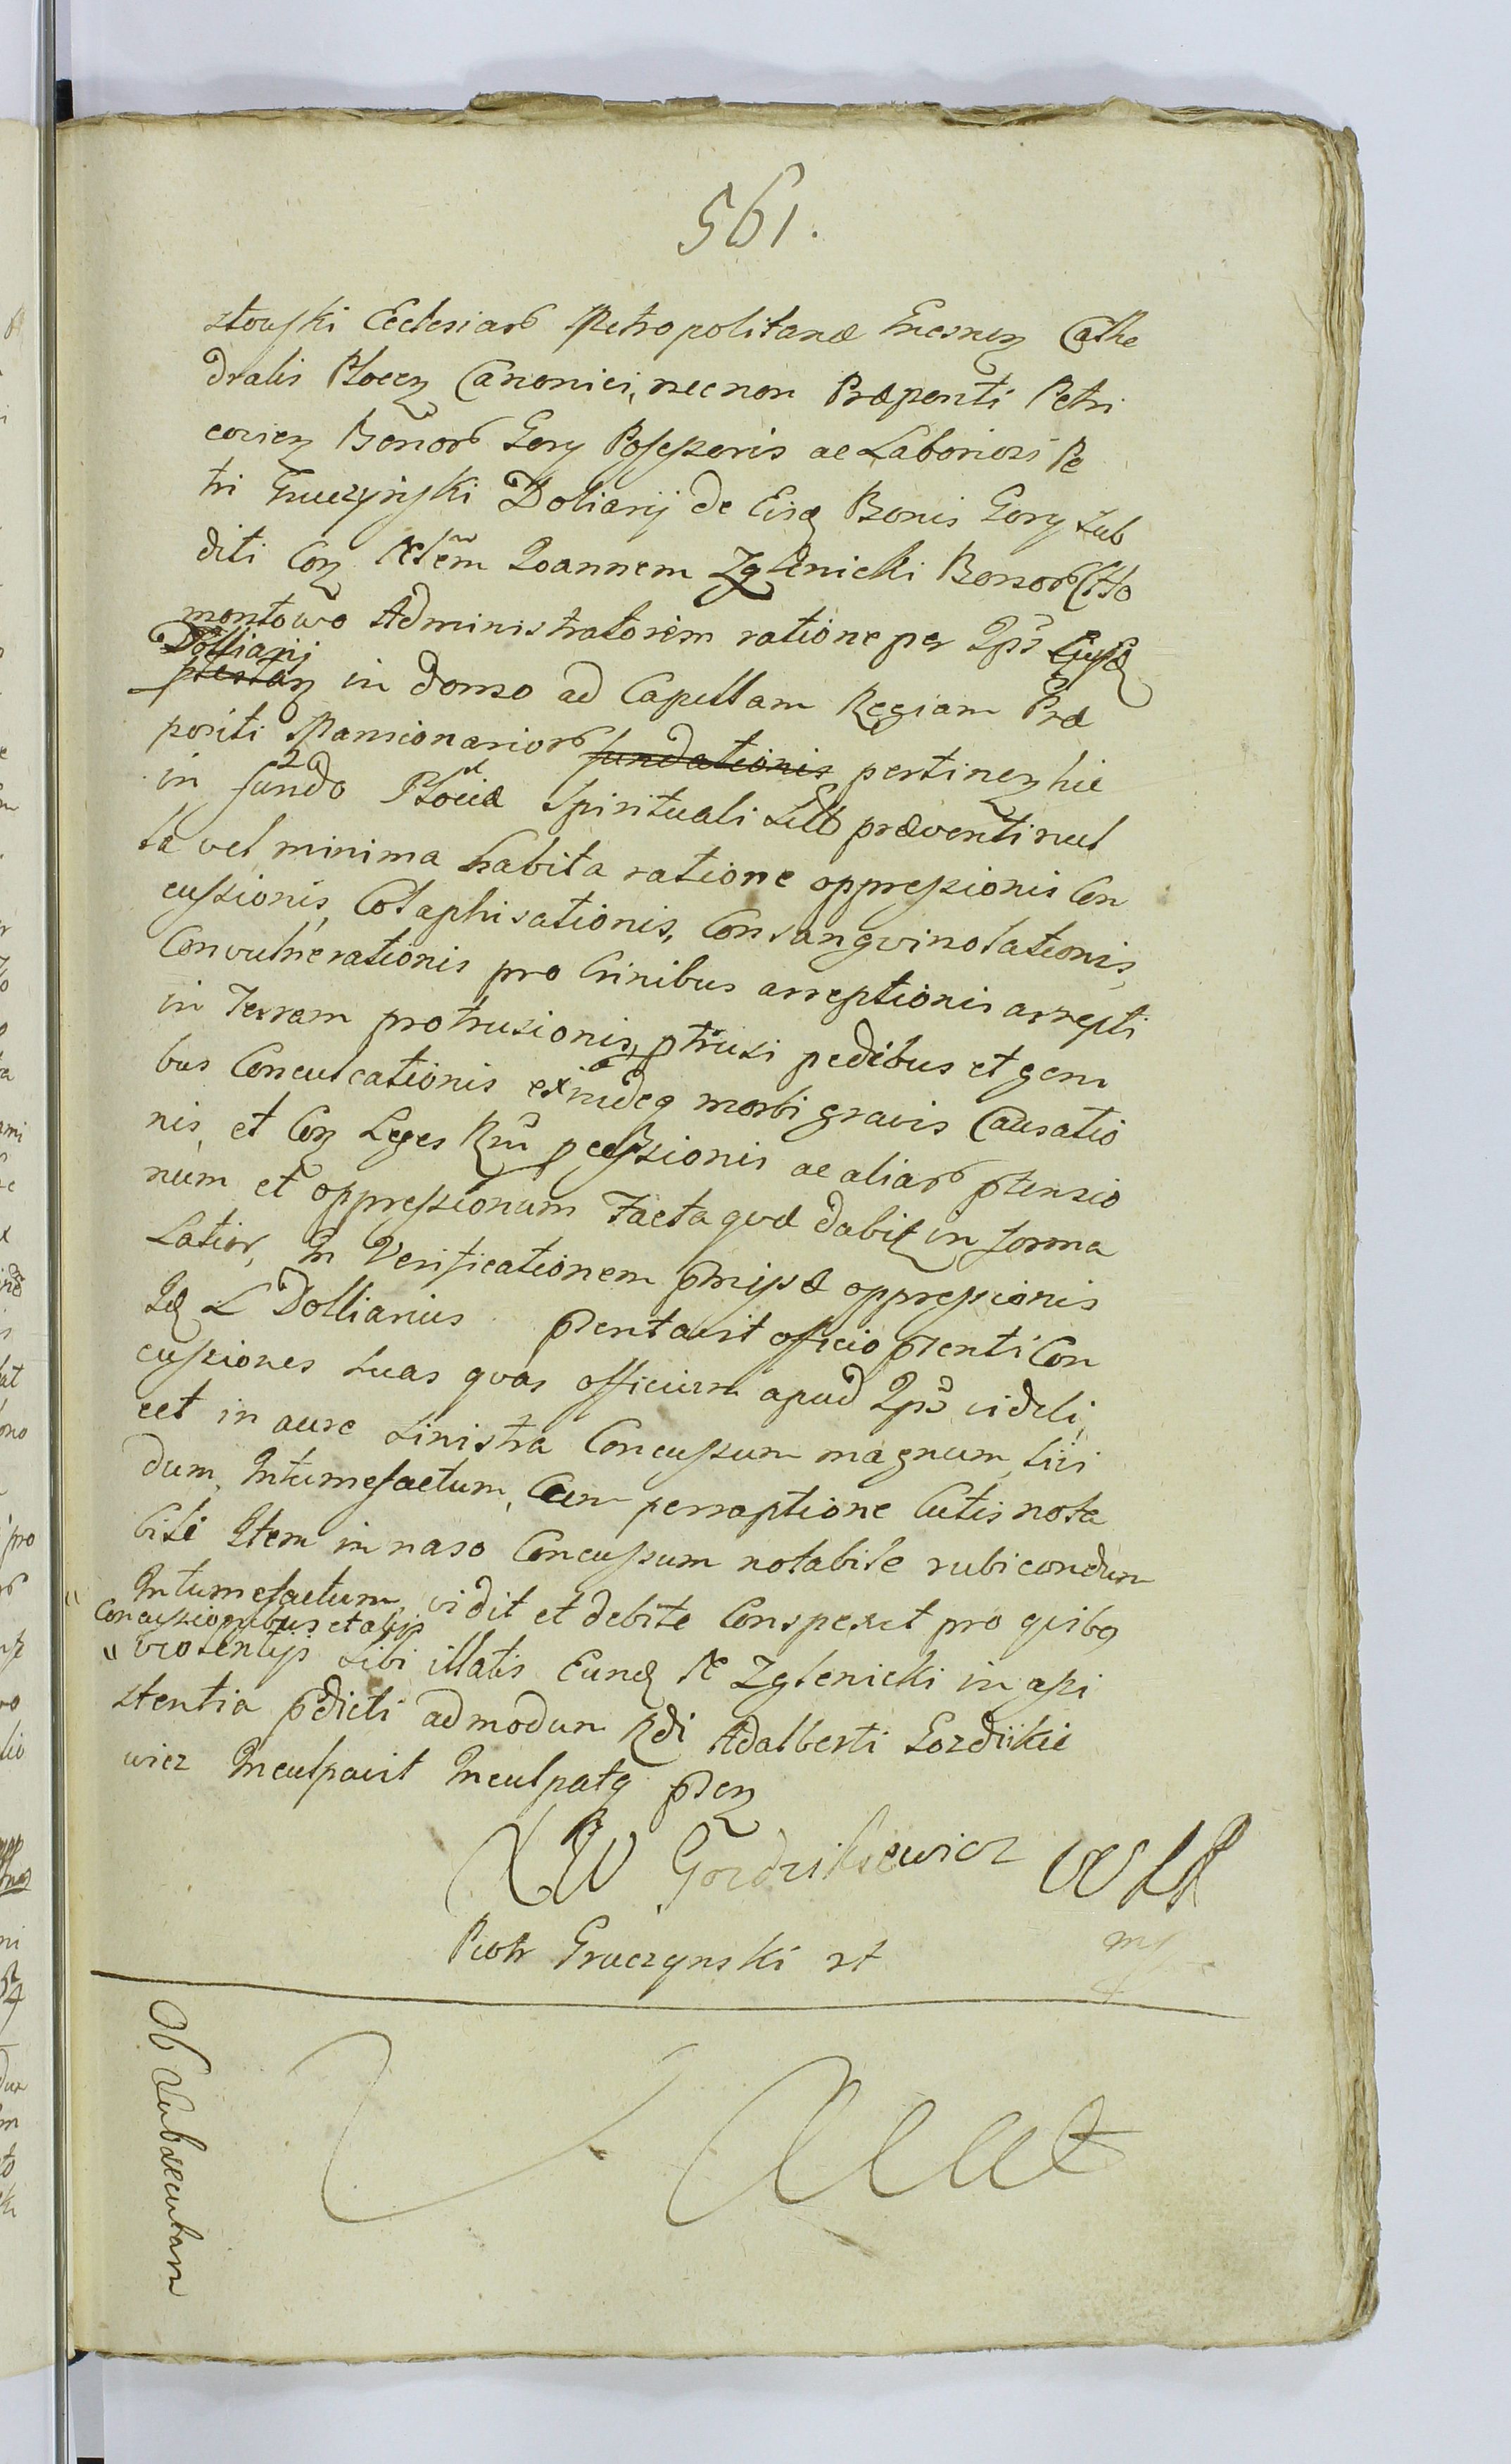 561.
stowski Ecclesiar Metropolitanæ Gnesnen Cathe
dralis Plocen Canonici, necnon Præpositi Petri
covien Bonor Gory Possessoris ac Laboriosi Pe
tri Gruczynski Doliarij de Eisd Bonis Gory Sub
diti Con Joannem Zglenicki Bonor Cho
montowo Administratorem ratione per Ips Ejusd
Dolliarij
in domo ad Capellam Regiam Præ
positi Mansionarior fundationis pertinen hic
in fundo Plociæ Spirituali Sub præventi nul
la vel minima habita ratione oppressionis Con
cussionis, Colaphisationis, Consangvinolationis,
Convulnerationis pro Crinibus arreptionis arrepti
in Terram protrusionis, ptrusi pedibus et geni
bus Conculcationis exindeq morbi gravis Causatio
nis, et Con Leges Rni pcessionis ac aliar ptensio
num et oppressionum Facta quæ dabit in forma
Latior, In Verificationem pmissæ oppressionis
Id L Dolliarius psentavit officio psenti Con
cussiones suas quas officium apud Ips videli,
cet in aure Sinistra Concussum magnum, livi
dum, Intumefactum, Cum perraptione Cutis nota
bili Item in naso Concussum notabile rubicondum
Intumefactum, vidit et debite Conspexit pro quibq
" Concussionibus et alijs
" violentijs Sibi illatis Eund Zglenicki in assi
stentia pdicti admodum Rdi Adalberti Gozdzikie
wicz Inculpavit Inculpatq psen
X W Gozdzikiewicz
mp
Piotr Gruczynski
Ob